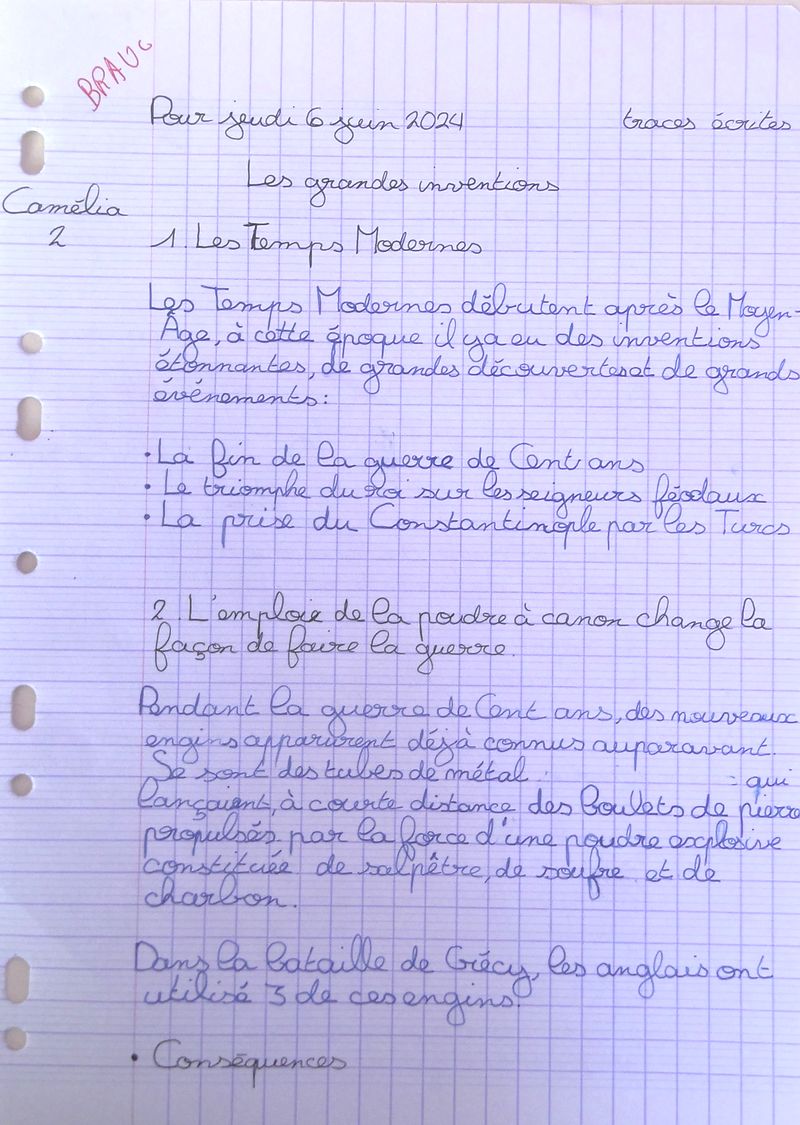 BRAVO
Pour jeudi 6 juin 2024 traces écrites
Les grandes inventions
Camélia
2
1. Les Temps Modernes
Les Temps Modernes débutent après le Moyen-
Âge, à cette époque il y a eu des inventions
étonnantes, de grandes découvertes et de grands
événements :
• La fin de la guerre de Cent ans
• Le triomphe du roi sur les seigneurs féodaux
• La prise du Constantinople par les Turcs
2. L'emploie de la poudre à canon change la
façon de faire la guerre.
Pendant la guerre de Cent ans, des nouveaux
engins apparurent déjà connus auparavant.
Se sont des tubes de métal : qui
lançaient, à courte distance des boulets de pierre
propulsés par la force d'une poudre explosive
constituée de salpêtre, de soufre et de
charbon.
Dans la bataille de Crécy, les anglais ont
utilisé 3 de ces engins.
• Conséquences